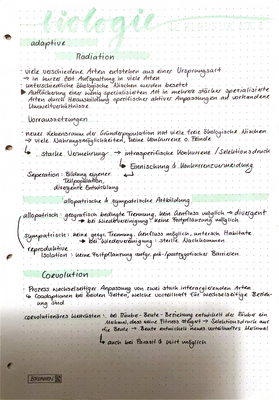 biologie
adaptive
Radiation
· viele verschiedene Arten entstehen aus einer Ursprungsart
→ in kurzer Zeit Aufspaltung in viele Arten
· unterschiedliche ökologische Nischen werden besetzt
· Aufspaltung einer wenig spezialisierten Art in mehrere stärker spezialisierte
Arten durch Herausbildung spezifischer Anpassungen an vorhandene
Umweltverhältnisse
Voraussetzungen
· neuer Lebensraum der Gründerpopulation hat viele freie ökologische Nischen
→ viele Nahrungsmöglichkeiten, keine Konkurrenz o. Feinde
↳ starke Vermehrung → intraspezifische Konkurrenz / Selektionsdruck
↳ Einnischung & Konkurrenzvermeidung
Separation: Bildung eigener
Teilpopulation,
divergente Entwicklung
allopatrische & sympatrische Artbildung
allopatrisch: geografisch bedingte Trennung, kein Genfluss möglich → divergent
↳ bei Wiedervereinigung: keine Fortpflanzung möglich
sympatrisch: keine geogr. Trennung, Genfluss möglich, untersch. Habitate
↳ bei Wiedervereinigung: sterile Nachkommen
reproduktive
Isolation: keine Fortpflanzung aufgr. prä-/postzygotischer Barrieren
Coevolution
· Prozess wechselseitiger Anpassung von zwei stark interagierenden Arten
↳ Coadaptionen bei beiden Seiten, welche vorteilhaft für wechselseitige Bezieh-
ung sind
coevolutionäres Wettrüsten: bei Räuber-Beute-Beziehung entwickelt der Räuber ein
Merkmal, dass seine Fitness steigert → Selektionsdruck auf
die Beute → Beute entwickelt neues vorteilhaftes Merkmal
↳ auch bei Parasit & Wirt möglich